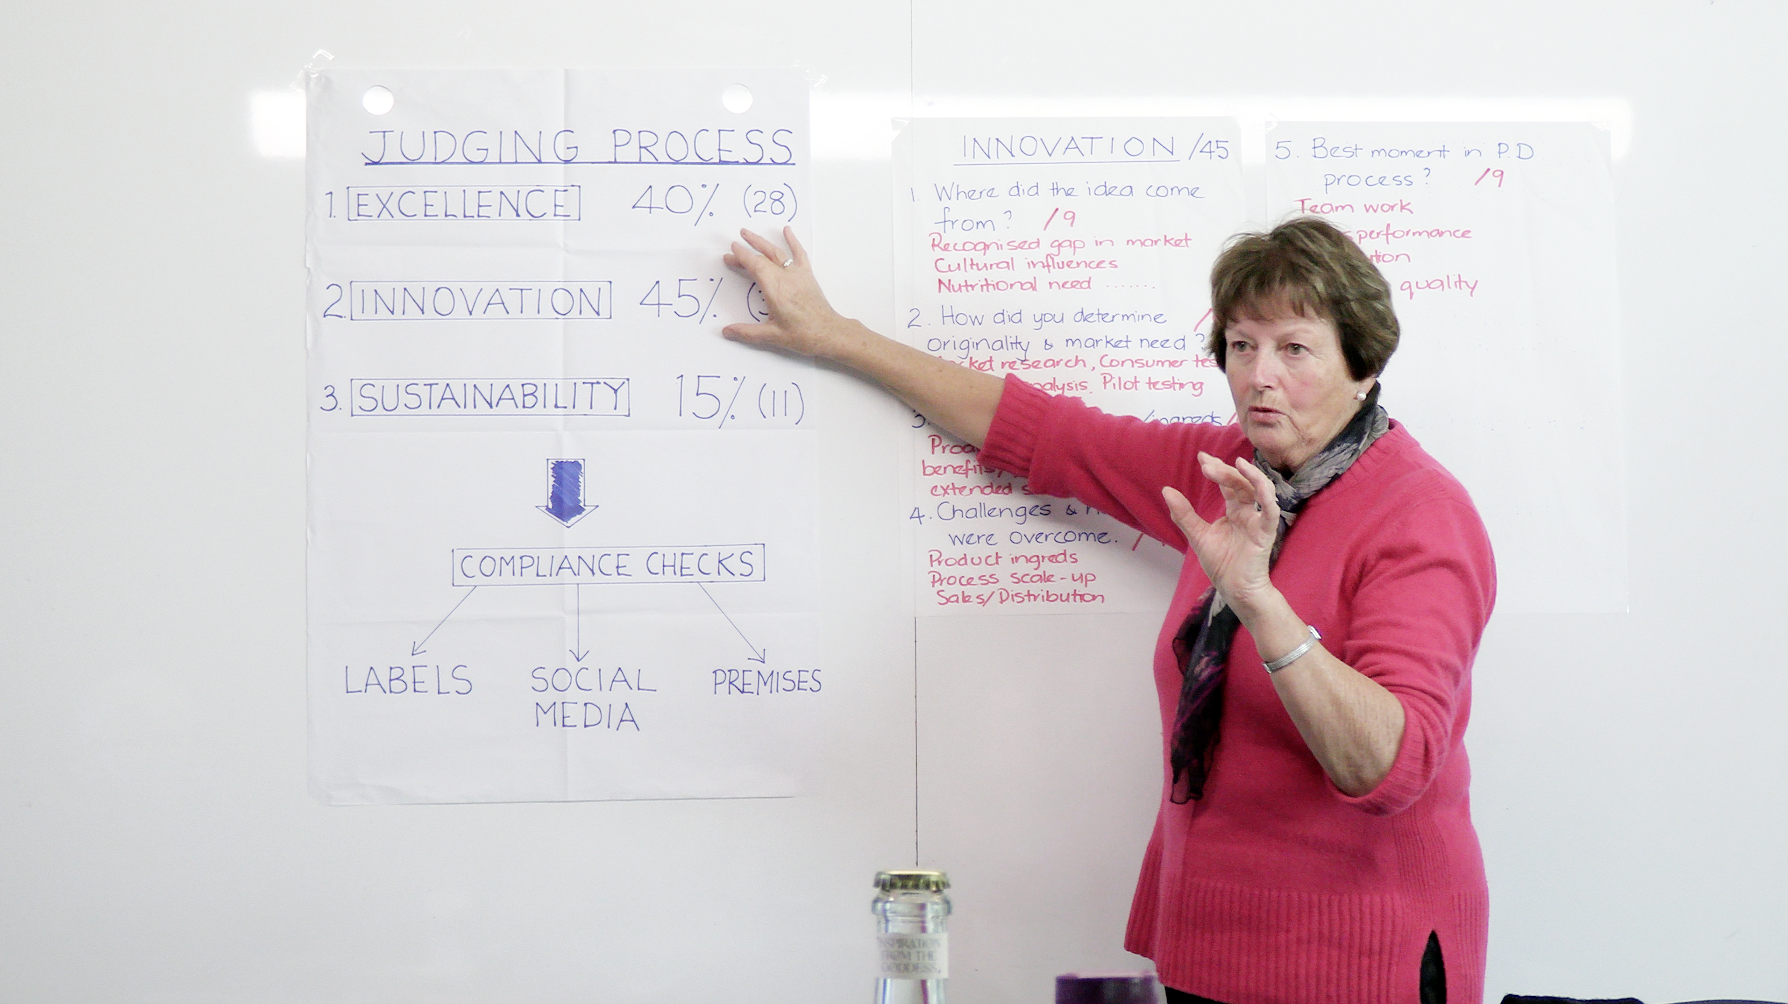 JUDGING PROCESS
1. EXCELLENCE 40% (28)
2. INNOVATION 45%
3. SUSTAINABILITY 15% (11)
COMPLIANCE CHECKS
LABELS SOCIAL MEDIA PREMISES
INNOVATION /45
1. Where did the idea come
from? /9
Recognised gap in market
Cultural influences
Nutritional need .......
2. How did you determine
originality & market need ?
research, Consumer
Pilot testing
3.
benefits
extended
4. Challenges &
were overcome.
Product ingreds
Process scale-up
Sales/Distribution
5. Best moment in P.D
process? /9
Team work
performance
quality
INSPIRATION
FROM THE
GODDESS